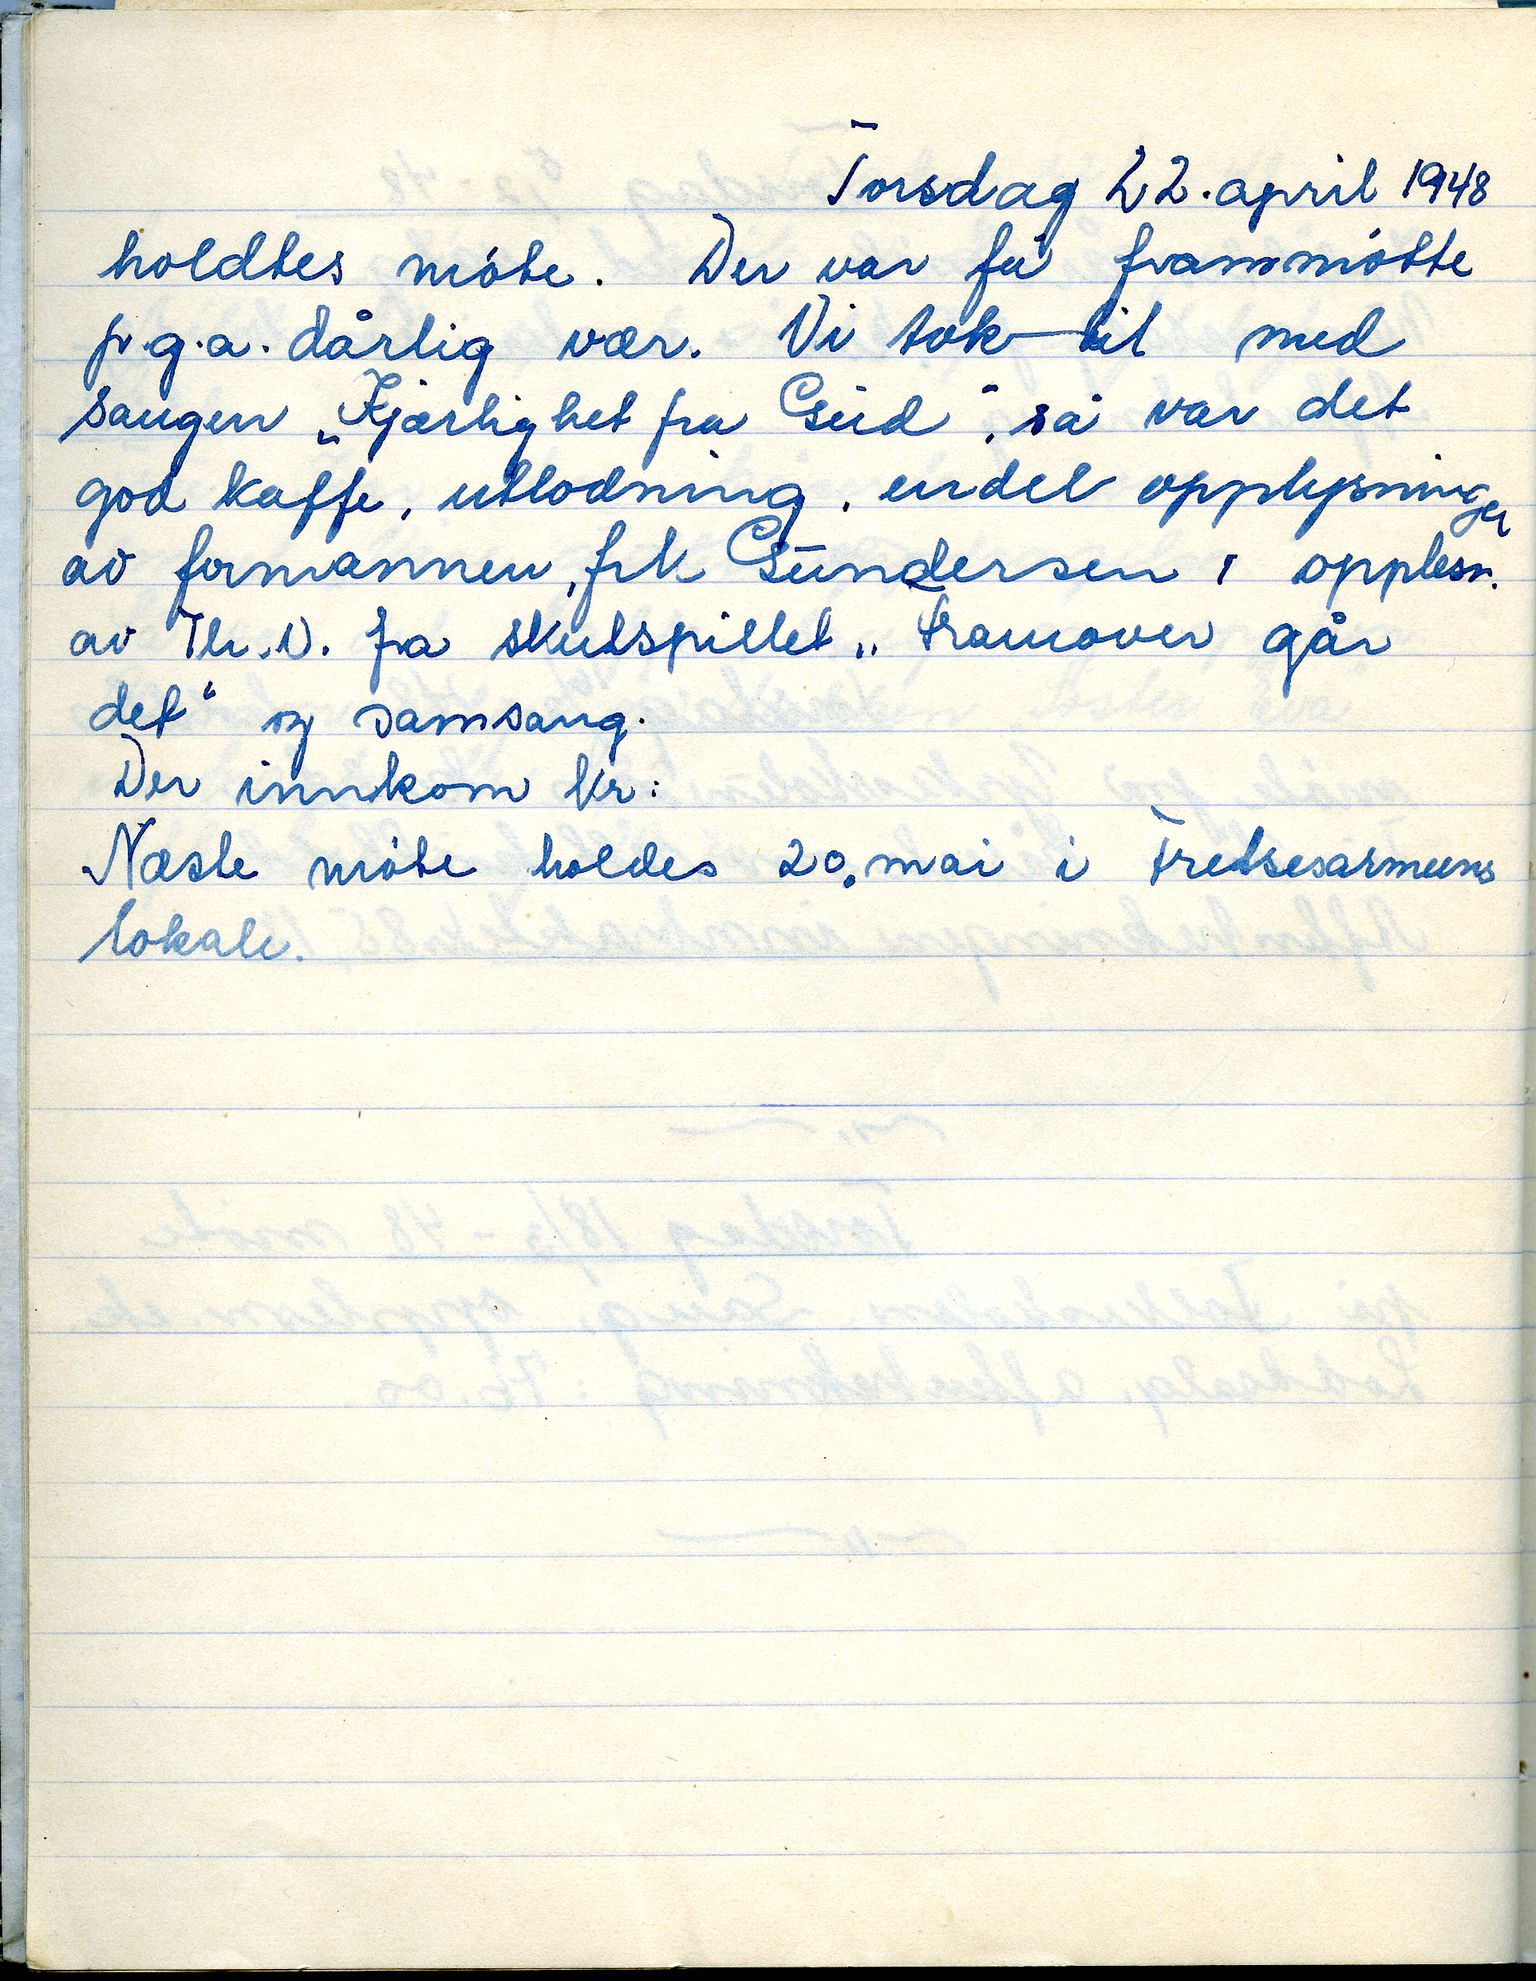 Torsdag 22. april 1948
holdtes möte. Der var få frammötte
p.g.a. dårlig vær. Vi tok til med
sangen „Kjærlighet fra Gud", så var det
god kaffe, utlodning, endel opplysninger
av formannen, frk Gundersen, opplesn.
av Th. N. fra skuespillet „Framover går
det" og samsang.
Der innkom kr:
Næste möte holdes 20. mai i Frelsesarmeens
lokale.